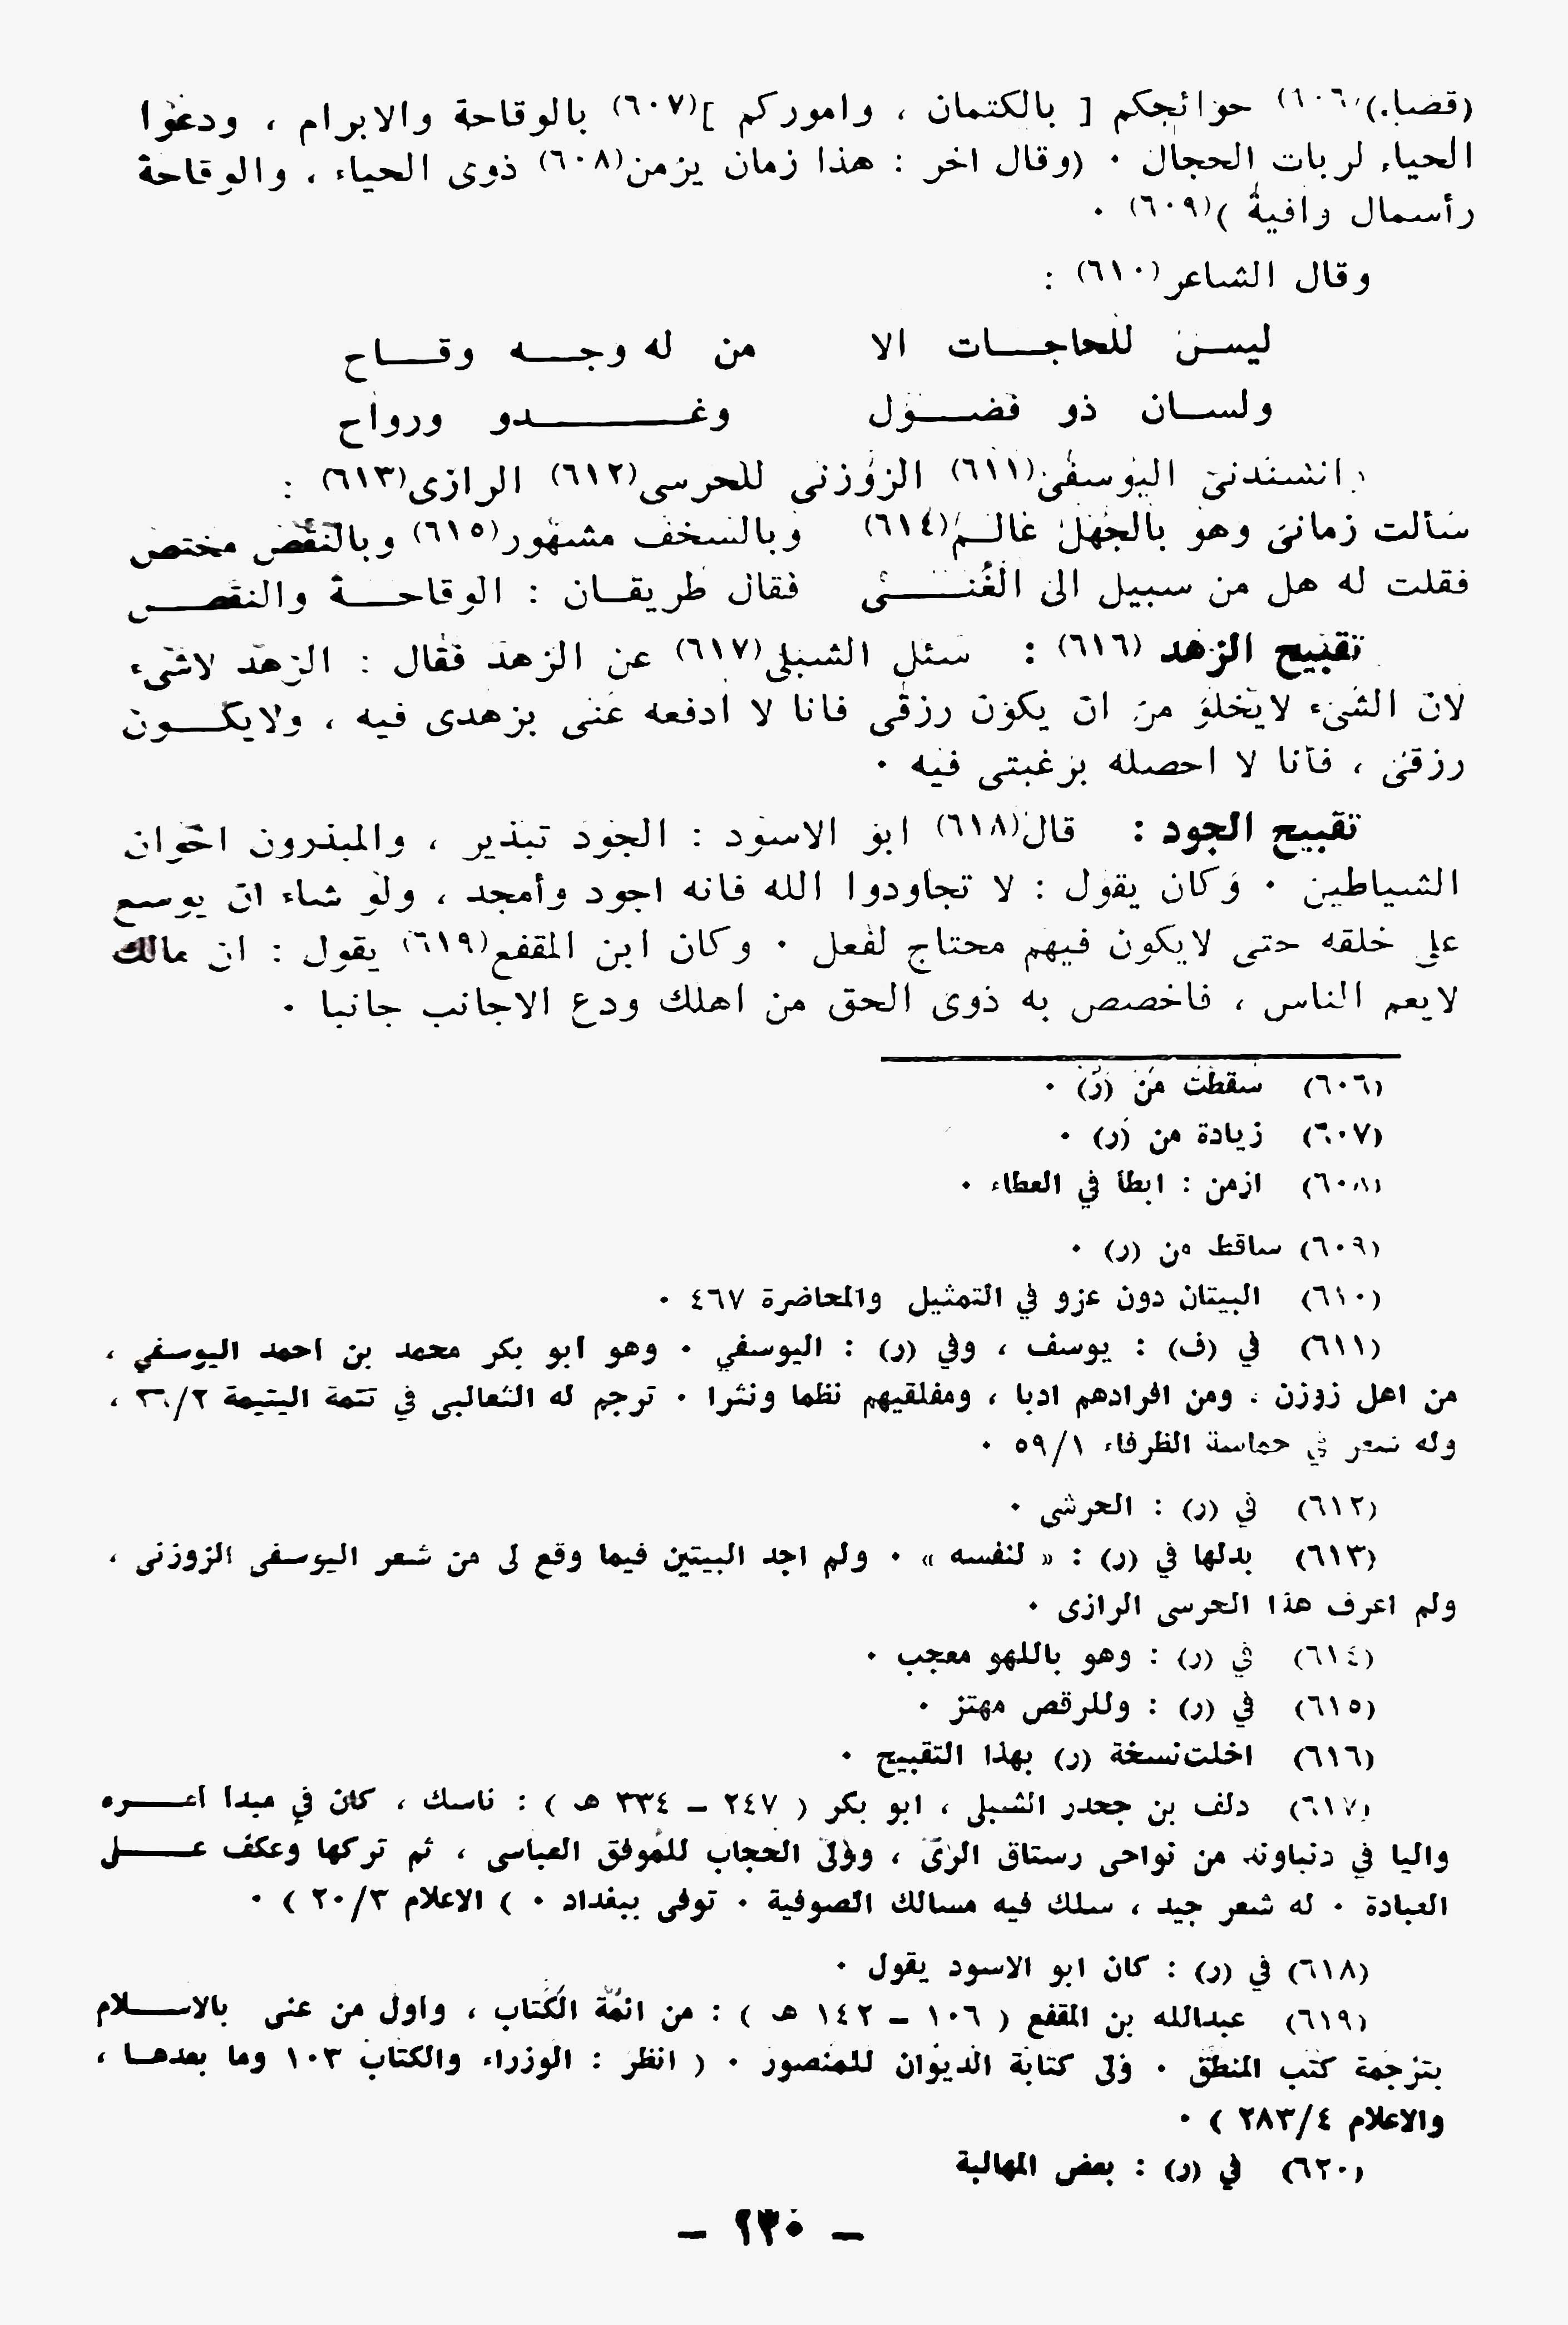 (قضاء)(٦٠٦) حوائجكم [ بالكتمان ، واموركم ](٦٠٧) بالوقاحة والابرام ، ودعوا
الحياء لربات الحجال ٠ (وقال اخر : هذا زمان يزمن(٦٠٨) ذوى الحياء ، والوقاحة
رأسمال وافية )(٦٠٩) ٠
وقال الشاعر(٦١٠) :
ليس للحاجات الا من له وجه وقاح
ولسان ذو فضول وغدو ورواح
وانشدنى اليوسفى(٦١١) الزوزنى للحرسى(٦١٢) الرازى(٦١٣) :
سألت زمانى وهو بالجهل عالم(٦١٤) وبالسخف مشهور(٦١٥) وبالنقص مختص
فقلت له هل من سبيل الى الغنى فقال طريقان : الوقاحة والنقص
تقبيح الزهد (٦١٦) : سئل الشبلى(٦١٧) عن الزهد فقال : الزهد لاشىء
لان الشىء لايخلو من ان يكون رزقى فانا لا ادفعه عنى بزهدى فيه ، ولايكون
رزقى ، فأنا لا احصله برغبتى فيه ٠
تقبيح الجود : قال(٦١٨) ابو الاسود : الجود تبذير ، والمبذرون اخوان
الشياطين ٠ وكان يقول : لا تجاودوا الله فانه اجود وأمجد ، ولو شاء ان يوسع
على خلقه حتى لايكون فيهم محتاج لفعل ٠ وكان ابن المقفع(٦١٩) يقول : ان مالك
لايعم الناس ، فاخصص به ذوى الحق من اهلك ودع الاجانب جانبا ٠
(٦٠٦) سقطت من (ر) ٠
(٦٠٧) زيادة من (ر) ٠
(٦٠٨) ازمن : ابطأ في العطاء ٠
(٦٠٩) ساقط من (ر) ٠
(٦١٠) البيتان دون عزو في التمثيل والمحاضرة ٤٦٧ ٠
(٦١١) في (ف) : يوسف ، وفي (ر) : اليوسفي ٠ وهو ابو بكر محمد بن احمد اليوسفي ،
من اهل زوزن . ومن افرادهم ادبا ، ومفلقيهم نظما ونثرا ٠ ترجم له الثعالبى في تتمة اليتيمة ٣٦/٢ ،
وله شعر في حماسة الظرفاء ٥٩/١ ٠
(٦١٢) في (ر) : الحرشى ٠
(٦١٣) بدلها في (ر) : « لنفسه » ٠ ولم اجد البيتين فيما وقع لى من شعر اليوسفى الزوزنى ،
ولم اعرف هذا الحرسى الرازى ٠
(٦١٤) في (ر) : وهو باللهو معجب ٠
(٦١٥) في (ر) : وللرقص مهتز ٠
(٦١٦) اخلت نسخة (ر) بهذا التقبيح ٠
(٦١٧) دلف بن جحدر الشبلى ، ابو بكر ( ٢٤٧ – ٣٣٤ هـ ) : ناسك ، كان في مبدا امره
واليا في دنباوند من نواحى رستاق الرى ، وولى الحجاب للموفق العباسى ، ثم تركها وعكف على
العبادة ٠ له شعر جيد ، سلك فيه مسالك الصوفية ٠ توفى ببغداد ٠ ( الاعلام ٢٠/٣ ) ٠
(٦١٨) في (ر) : كان ابو الاسود يقول ٠
(٦١٩) عبدالله بن المقفع ( ١٠٦ – ١٤٢ هـ ) : من ائمة الكتاب ، واول من عنى بالاسلام
بترجمة كتب المنطق ٠ ولى كتابة الديوان للمنصور ٠ ( انظر : الوزراء والكتاب ١٠٣ وما بعدها ،
والاعلام ٢٨٣/٤ ) ٠
(٦٢٠) في (ر) : بعض المهالبة
– ٢٣٠ –